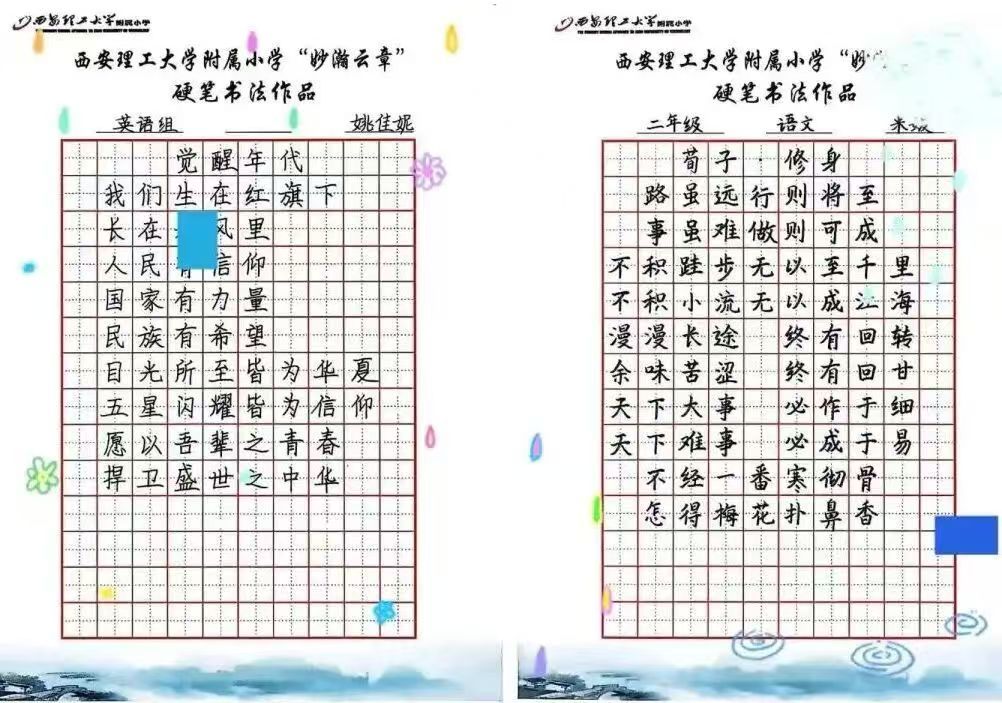 西安理工大学附属小学
西安理工大学附属小学“妙瀚云章”
硬笔书法作品
英语组 姚佳妮
觉醒年代
我们生在红旗下
长在 风里
人民 信仰
国家有力量
民族有希望
目光所至皆为华夏
五星闪耀皆为信仰
愿以吾辈之青春
捍卫盛世之中华
西安理工大学附属小学
西安理工大学附属小学“妙
硬笔书法作品
二年级 语文
荀子·修身
路虽远行则将至
事虽难做则可成
不积跬步无以至千里
不积小流无以成江海
漫漫长途 终有回转
余味苦涩 终有回甘
天下大事 必作于细
天下难事 必成于易
不经一番寒彻骨
怎得梅花扑鼻香